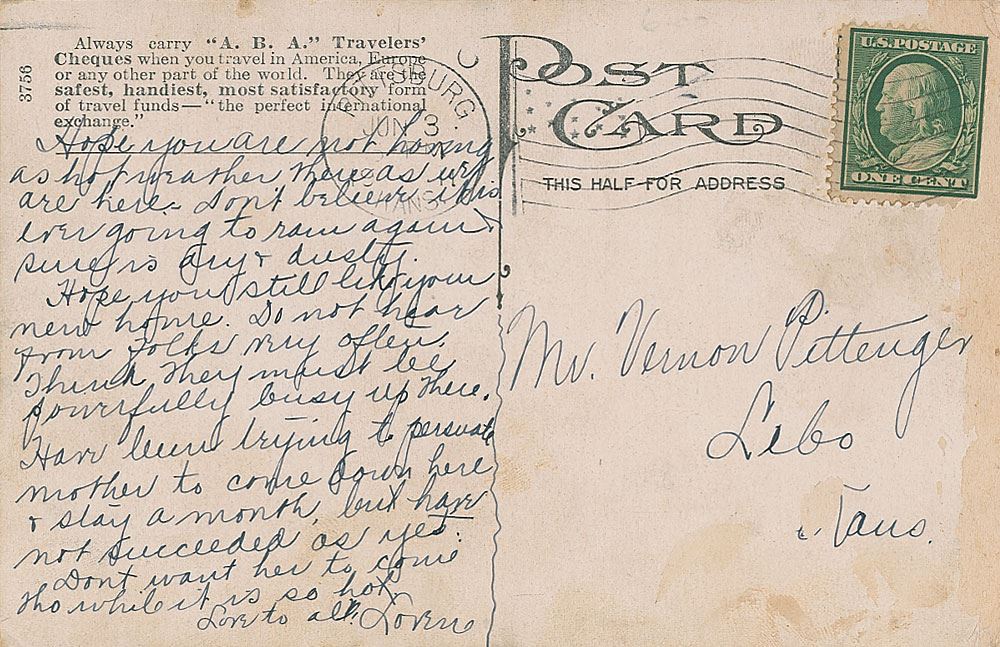 Always carry "A. B. A." Travelers'
Cheques when you travel in America, Europe
or any other part of the world. They are the
safest, handiest, most satisfactory form
of travel funds—"the perfect international
exchange."
3756
JUN 3
POST
CARD
THIS HALF FOR ADDRESS
U.S. POSTAGE
ONE CENT
Hope you are not having
as hot weather there as we
are here. Don't believe its
ever going to rain again
sure is dry & dusty.
Hope you still like your
new home. Do not hear
from folks very often.
Think they must be
powerfully busy up there.
Have been trying to persuade
mother to come down here
& stay a month, but have
not succeeded as yet.
Dont want her to come
tho while it is so hot.
Love to all, Lorene
Mr. Vernon Pittenger
Lebo
Kans.